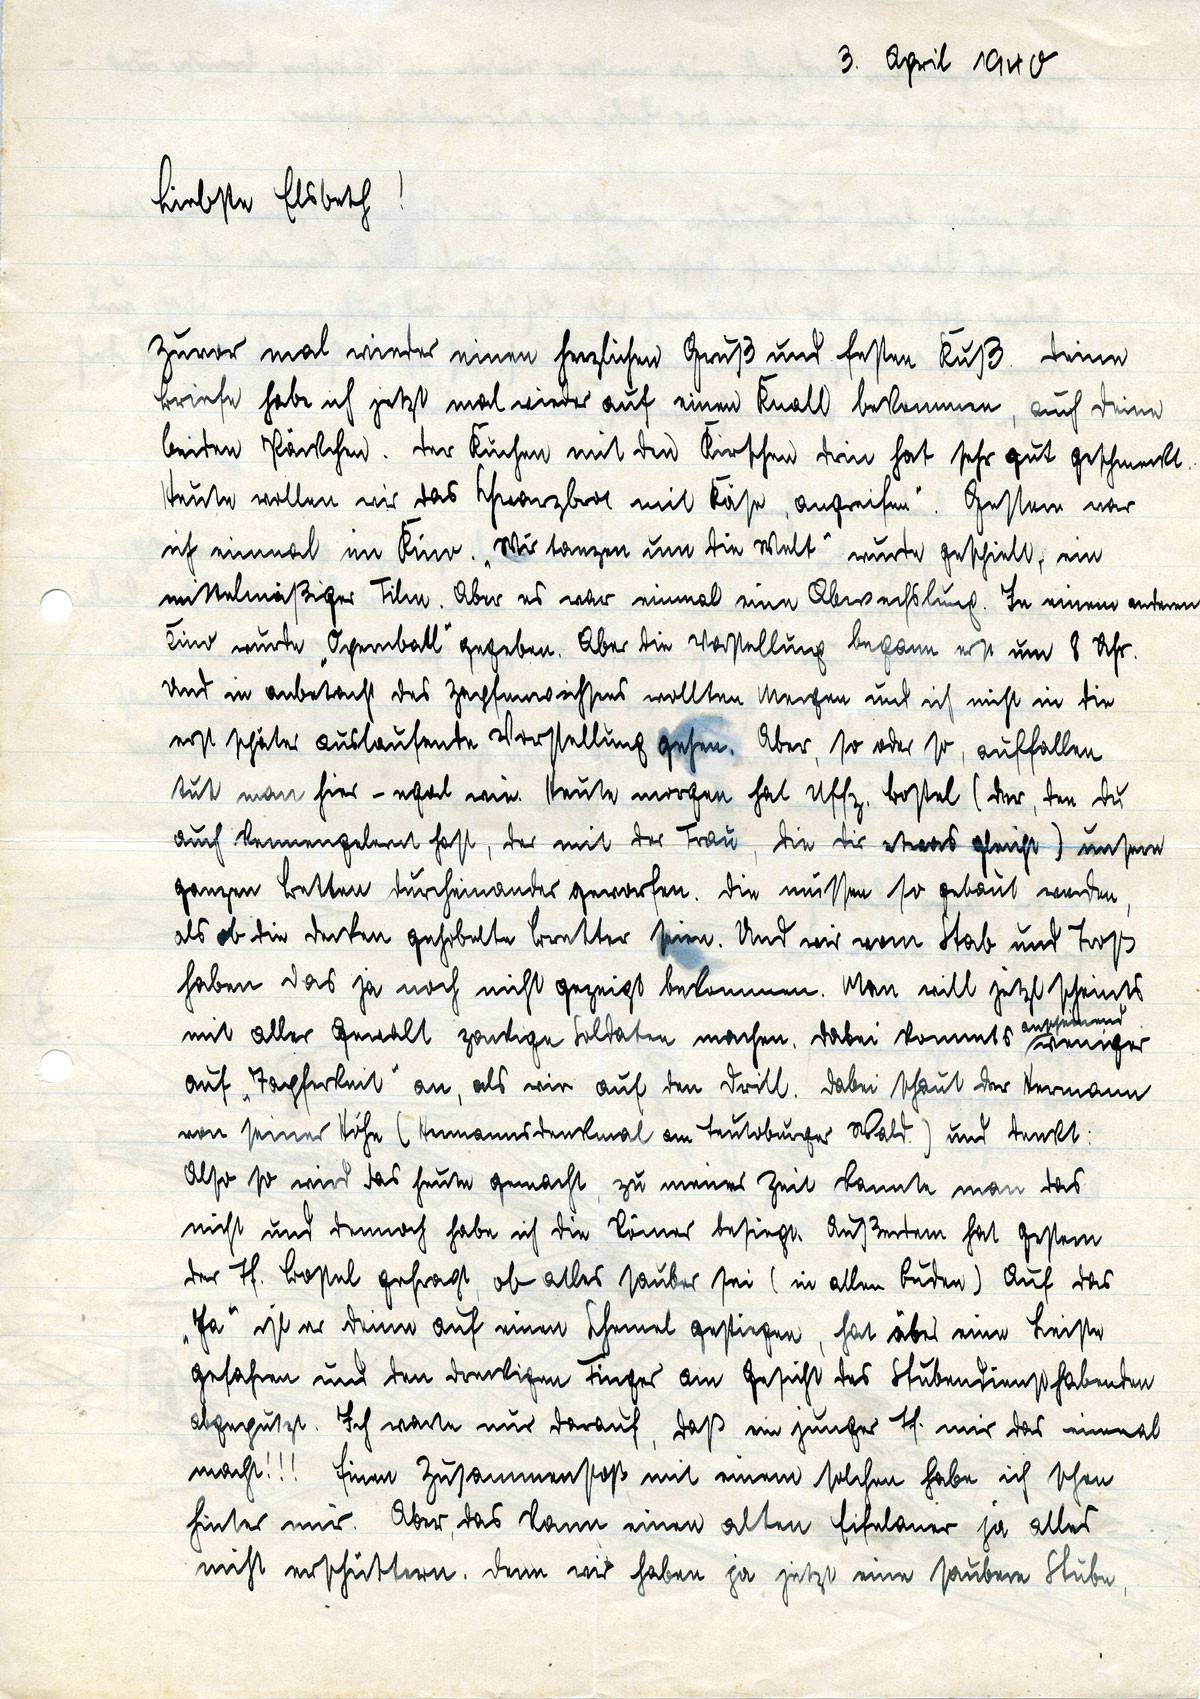 3. April 1940
Liebste Elsbeth!
Zuvor mal wieder einen herzlichen Gruß und festen Kuß. Deine
Briefe habe ich jetzt mal wieder auf einen Knall bekommen, auch deine
beiden Päckchen. Der Kuchen mit den Kirschen drin hat sehr gut geschmeckt.
Heute wollen wir das Schwarzbrot mit Käse „angreifen“. Gestern war
ich einmal im Kino. „Wir tanzen um die Welt“ wurde gespielt, ein
mittelmäßiger Film. Aber es war einmal eine Abwechslung. In einem anderen
Kino wurde „Opernball“ gegeben. Aber die Vorstellung begann erst um 8 Uhr.
Und in anbetracht des Zapfenwichses wollten Mergen und ich nicht in die
erst später auslaufende Vorstellung gehen. Aber, so oder so, auffallen
tut man hier – egal wie. Heute morgen hat Uffz. Bostel (der, den du
auch kennengelernt hast, der mit der Frau, die dir etwas gleicht) unsere
ganzen Betten durcheinander geworfen. Die müssen so gebaut werden,
als ob die Decken gehobelte Bretter seien. Und wir vom Stab und Troß
haben das ja noch nicht gezeigt bekommen. Man will jetzt scheints
mit aller Gewalt zackige Soldaten machen. Dabei kommts anscheinend weniger
auf „Tapferkeit“ an, als wie auf den Drill. Dabei schaut der Hermann
von seiner Höhe (Hermannsdenkmal am Teutoburger Wald.) und denkt:
Also so wird das heute gemacht, zu meiner Zeit kannte man das
nicht und dennoch habe ich die Römer besiegt. Außerdem hat gestern
der Uf. Bostel gefragt, ob alles sauber sei (in allen Buden) Auf das
„Ja“ ist er dann auf einen Schemel gestiegen, hat über eine Leiste
gefahren und den dreckigen Finger am Gesicht des Stubendiensthabenden
abgeputzt. Ich warte nur darauf, daß ein junger Uf. mir das einmal
macht!!! Einen Zusammenstoß mit einem solchen habe ich schon
hinter mir. Aber, das kann einen alten Eifelaner ja alles
nicht erschüttern. Denn wir haben ja jetzt eine saubere Stube,